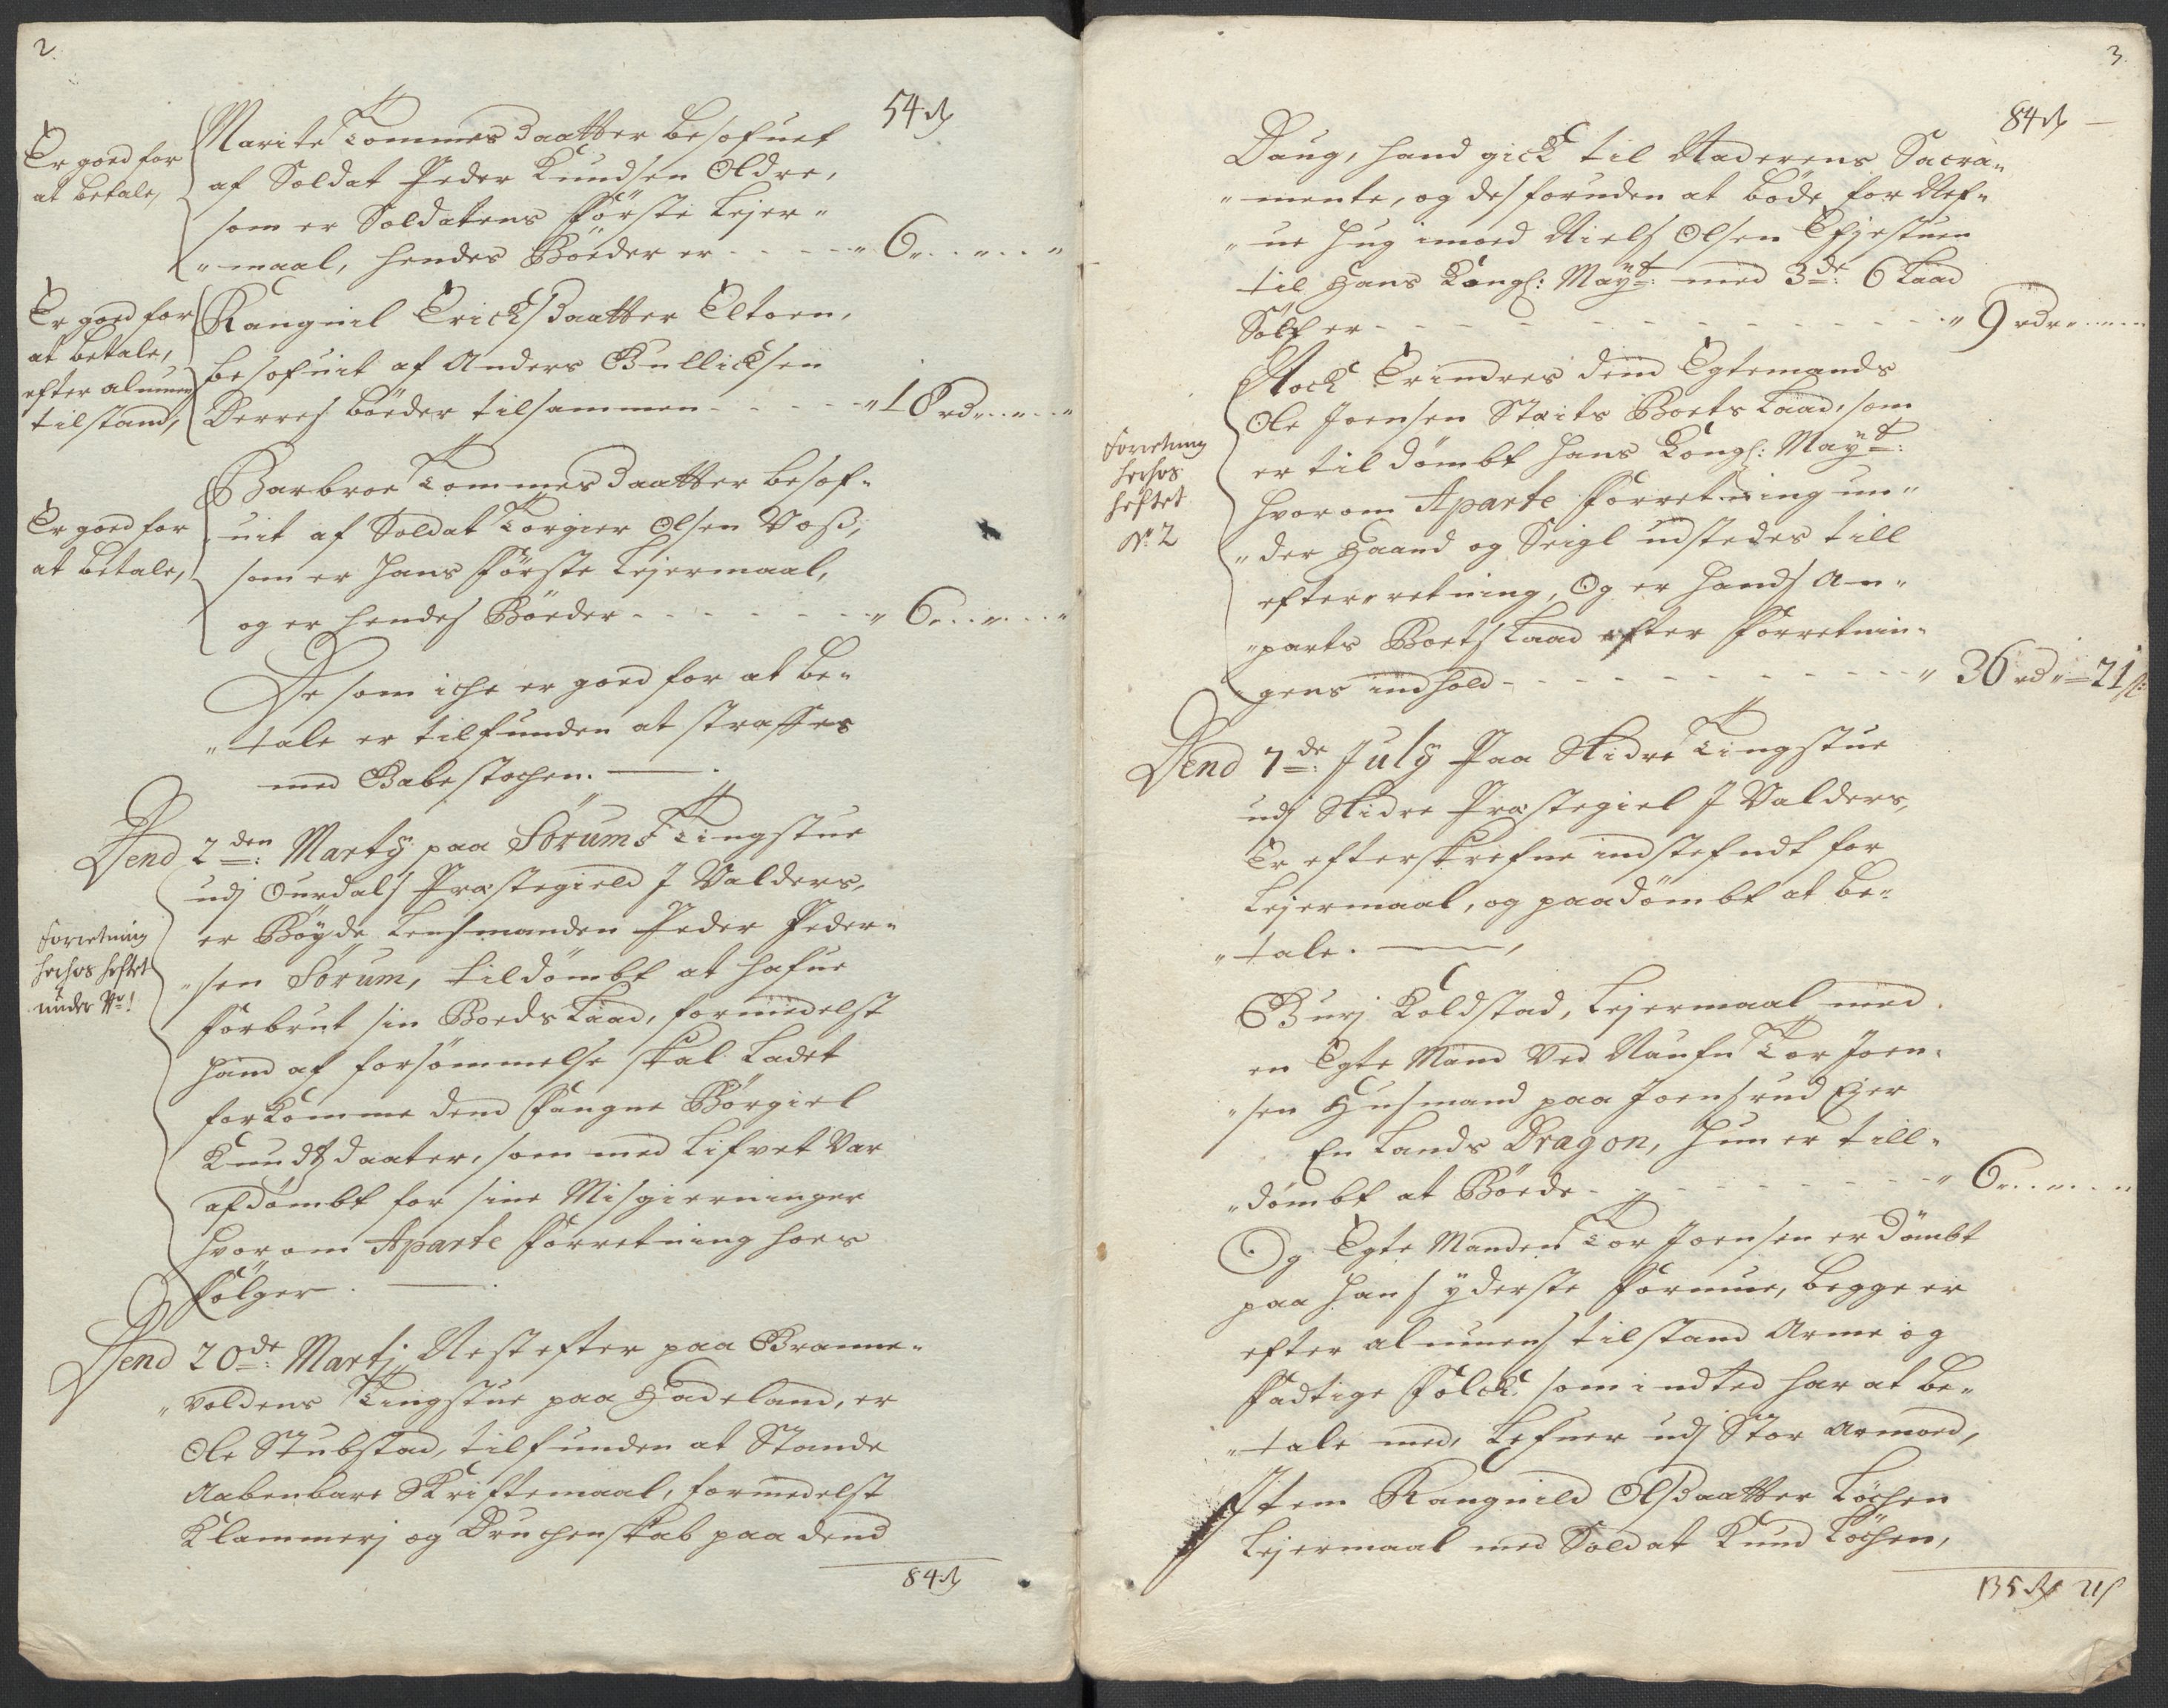 2.
54 rdr
Er goed for
at betale,
Marite Tommesdaatter besofuet
af Soldat Peder Knudsen Oldre,
som er Soldatens første Lejer"
"maal, hendes Bøeder er - - - - " 6 " . . " . . "
Er goed for
at betale,
efter almuens
tilstand,
Rangnil Erichsdaatter Eltoen,
besofuit af Anders Gullichsen
Derres bøeder tilsammen - - - - " 18 rd " . . " . . "
Er goed for
at betale,
Barbroe Tommesdaatter besof"
"uit af Soldat Torgier Olsen Voss,
som er hans første Lejermaal,
og er hendes Bøeder - - - - - - " 6 " . . " . . "
De som iche er goed for at be"
"tale er tilfunden at straffes
med Gabestochen. —
Dend 2den: Martÿ paa Sørums Tingstue
udj Ourdals Præstegield J Valders,
forretning
herhos heftet
under No. 1
er Bøyde Lensmanden Peder Peder"
"sen Sørum, tildømbt at hafue
forbrut sin Boeds Laad, formedelst
hand af forsømmelse skal ladet
forkomme dend fangne Børgiel
Knudsdaater, som med Lifvet var
afdømbt for sine Misgierninger
hvorom Aparte forretning hoes
følger. —
Dend 20de: Martj Nest efter paa Granne"
"voldens Tingstue paa Hadeland, er
Ole Stubstad, tilfunden at Stande
Aabenbare Skriftemaal, formedelst
Klammerj og Druchenskab paa dend
84 rdr
3.
84 rdr —
Daug, hand gick til Naderens Sacra"
"mente, og desforuden at bøde for Nef"
"ue hug imoed Niels Olsen
til Hans Kongl: Mayt: med 3de: 6 Laad
Sølf er - - - - - - - - - - " 9 rdr " . . " . .
forretning
herhos
heftet
No. 2
Noch Erindres dend Egtemands
Ole Joensen Staits Boets Laad, som
er til dømbt Hans Kongl: Mayt:
hvorom Aparte forretning un"
"der Haand og Seigl udstedes till
efterretning, Og er hands An"
"parts Boets Laad efter forretnin"
gens indhold - - - - - - - - " 36 rd " = 21 s:
Dend 7de: Julÿ Paa Slidre Tingstue
udj Slidre Præstegiel J Valders,
Er efterskrefne indstefndt for
Lejermaal, og paadømbt at be"
"tale. —,
Gurj Koldstad, Lejermaal med
en Egte Mand ved Naufn Tor Joen"
"sen Husmand paa Joensrud Ejer
En Lands Dragon, hun er till"
"dømbt at Bøede - - - - - - - " 6 " . . " . . "
Og Egte Manden Tor Joensen er dømbt
paa hans yderste formue, begge er
efter almuens tilstand Arme og
fadtige folck som indted har at be"
"tale med, Lefuer udj Stor Armoed,
Item Rangnild Olsdaatter Løchen
Lejermaal med Soldat Knud Løchen,
135 rdr 21 s